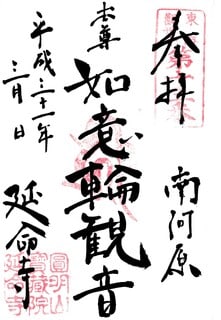 奉拝
南河原
本尊
如意輪観音
平成三十一年
三月 日
延命寺
圓明山
寳藏院
延命寺